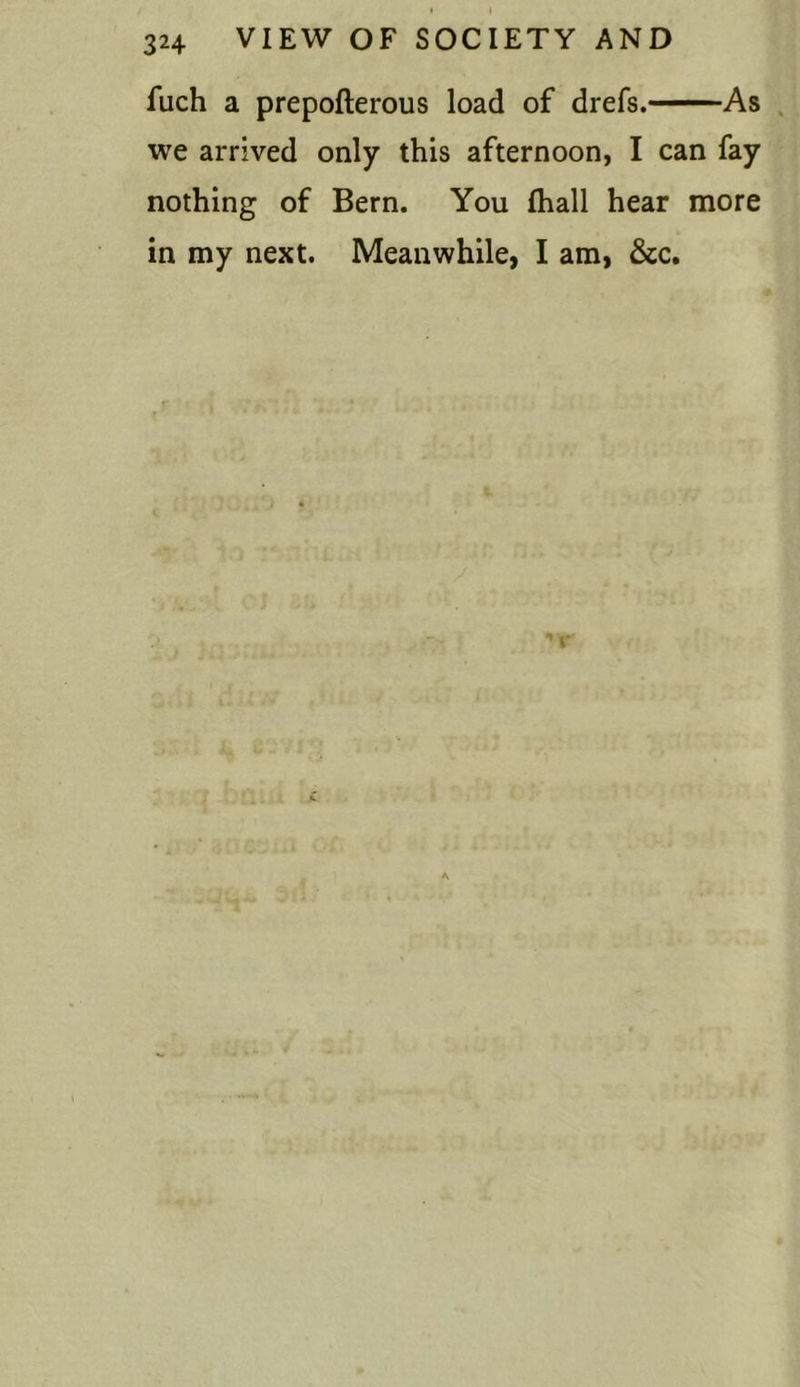 324 VIEW OF SOCIETY AND
ſuch a prepoſterous load of dreſs.——As
we arrived only this afternoon, I can ſay
nothing of Bern. You ſhall hear more
in my next. Meanwhile, I am, &c.